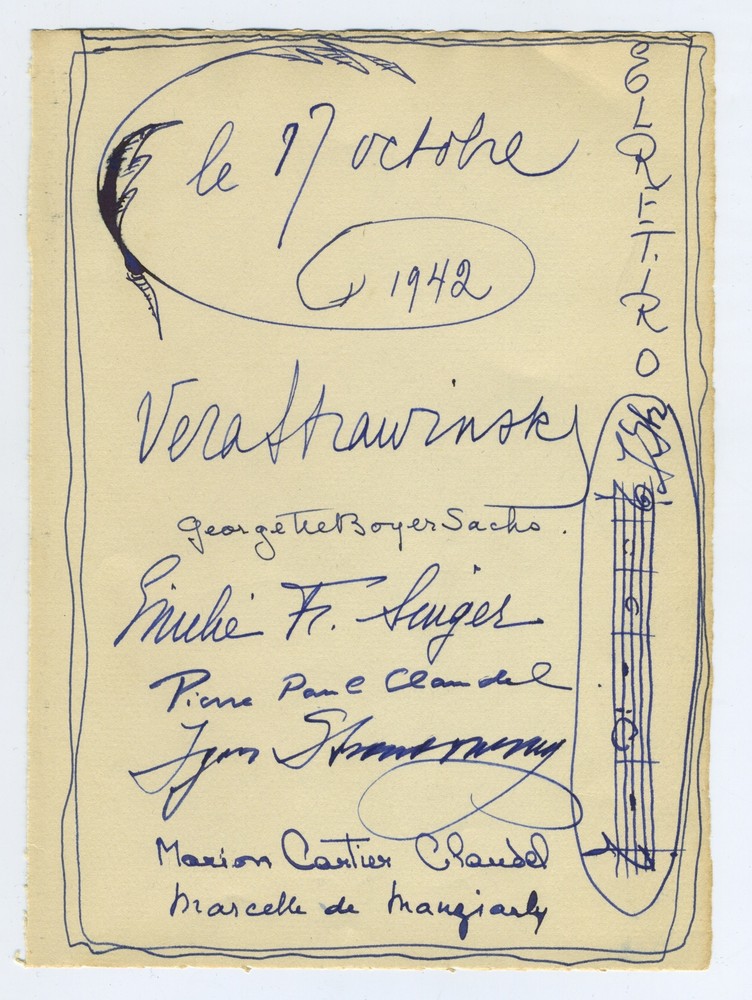 le 17 octobre
1942
EL RETIRO
Vera Strawinsky
Georgette Boyer Sachs.
Emilie Fr. Singer
Pierre Paul Claudel
Igor Strawinsky
Marion Cartier Claudel
Marcelle de Manziarly